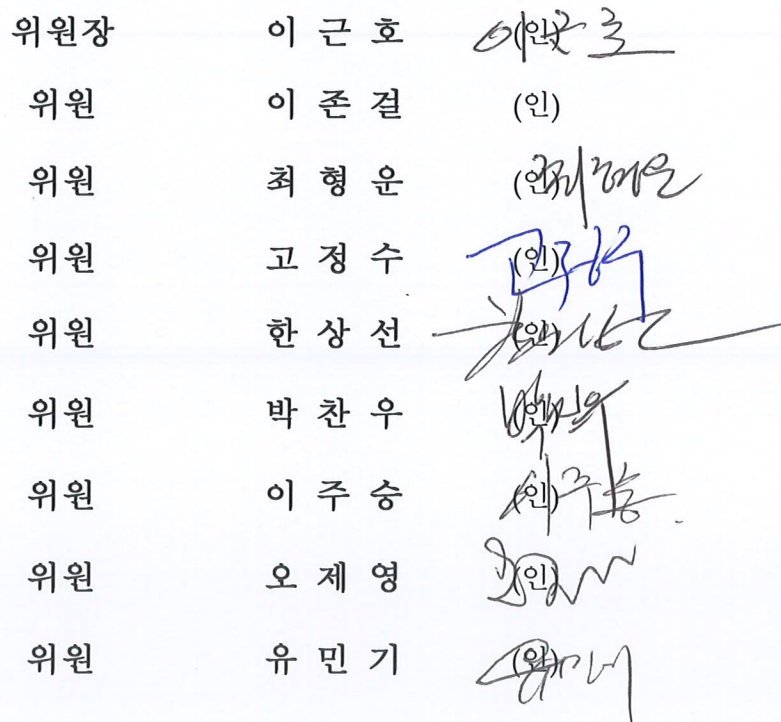 위원장 이 근 호 (인)
위원 이 존 걸 (인)
위원 최 형 운 (인)
위원 고 정 수 (인)
위원 한 상 선 (인)
위원 박 찬 우 (인)
위원 이 주 승 (인)
위원 오 제 영 (인)
위원 유 민 기 (인)